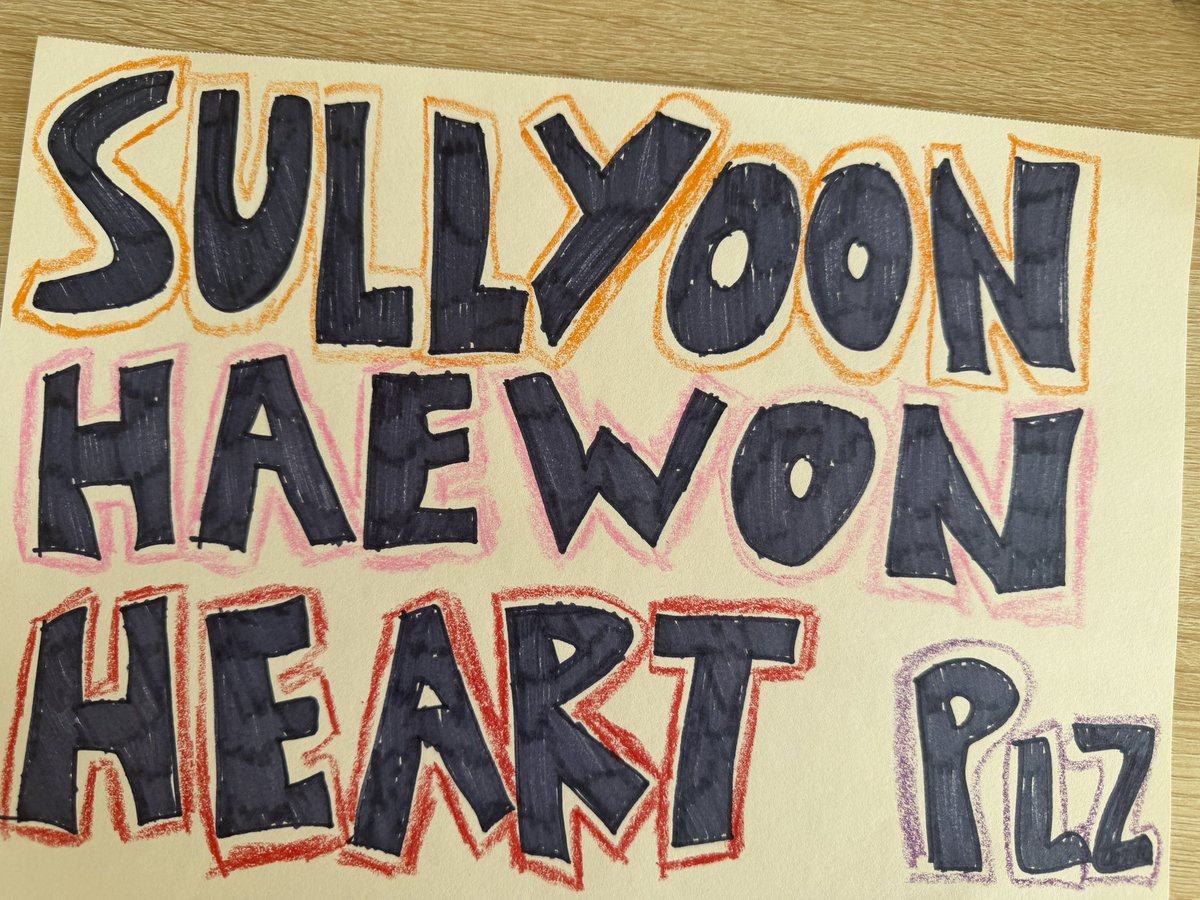 SULLYOON
HAEWON
HEART PLZ